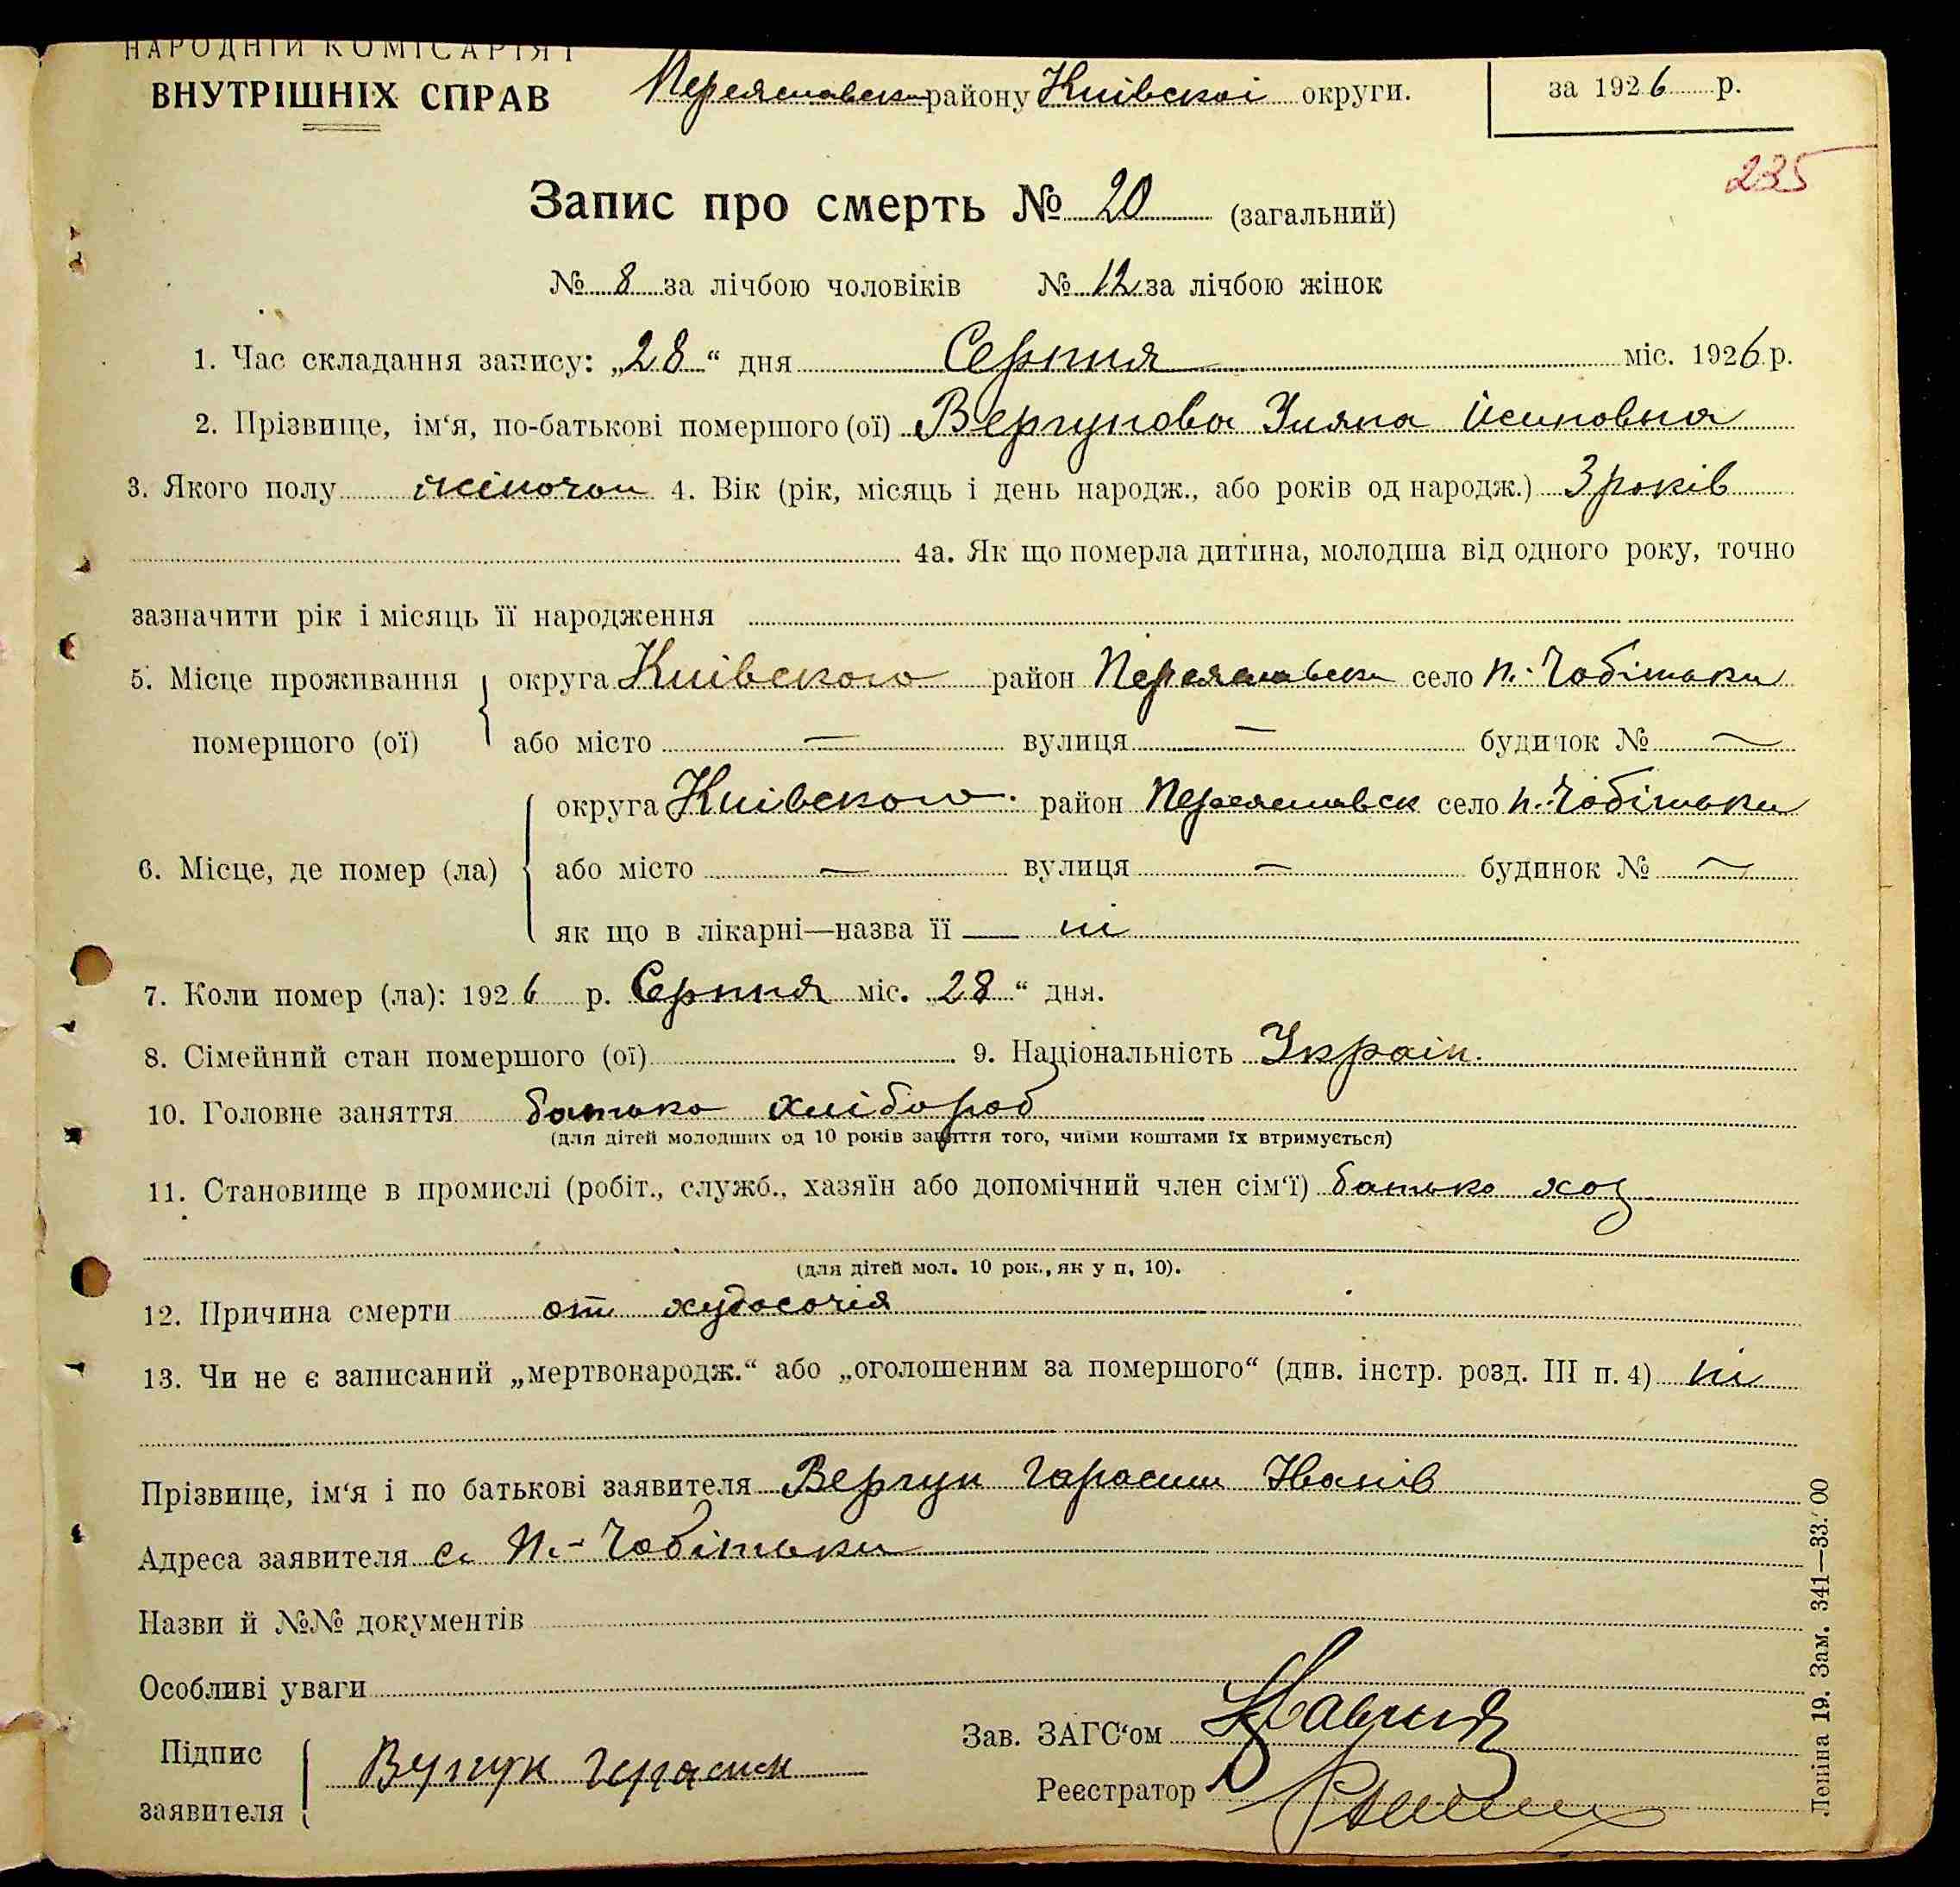 НАРОДНІЙ КОМІСАРІЯТ
ВНУТРІШНІХ СПРАВ
Переяславськ району Київскої округи.
за 1926 р.
235
Запис про смерть № 20 (загальний)
№ 8 за лічбою чоловіків № 12 за лічбою жінок
1. Час складання запису: „28“ дня Серпня міс. 1926 р.
2. Прізвище, ім‘я, по-батькові помершого (ої) Вергунова Уляна Йсиповна
3. Якого полу жіночои 4. Вік (рік, місяць і день народж., або років од народж.) 3 років
4а. Як що померла дитина, молодша від одного року, точно
зазначити рік і місяць її народження
5. Місце проживання помершого (ої) округа Київского район Переяславськ село п.-Чобітьки
або місто — вулиця — будинок № —
6. Місце, де помер (ла) округа Київского район Переяславск село п.-Чобітьки
або місто — вулиця — будинок № —
як що в лікарні—назва її — ні
7. Коли помер (ла): 1926 р. Серпня міс. „28“ дня.
8. Сімейний стан помершого (ої) 9. Національність Украін.
10. Головне заняття батько хлібороб
(для дітей молодших од 10 років заняття того, чиїми коштами їх втримується)
11. Становище в промислі (робіт., служб., хазяїн або допомічний член сім‘ї) батько хоз
(для дітей мол. 10 рок., як у п. 10).
12. Причина смерти от худосочія
13. Чи не є записаний „мертвонародж.“ або „оголошеним за помершого“ (див. інстр. розд. III п. 4) ні
Прізвище, ім‘я і по батькові заявителя Вергун Гарасим Иванів
Адреса заявителя с. П.-Чобітьки
Назви й №№ документів
Особливі уваги
Підпис заявителя Вургун Герасим
Зав. ЗАГС‘ом
Реєстратор
Леніна 19. Зам. 341—33.000